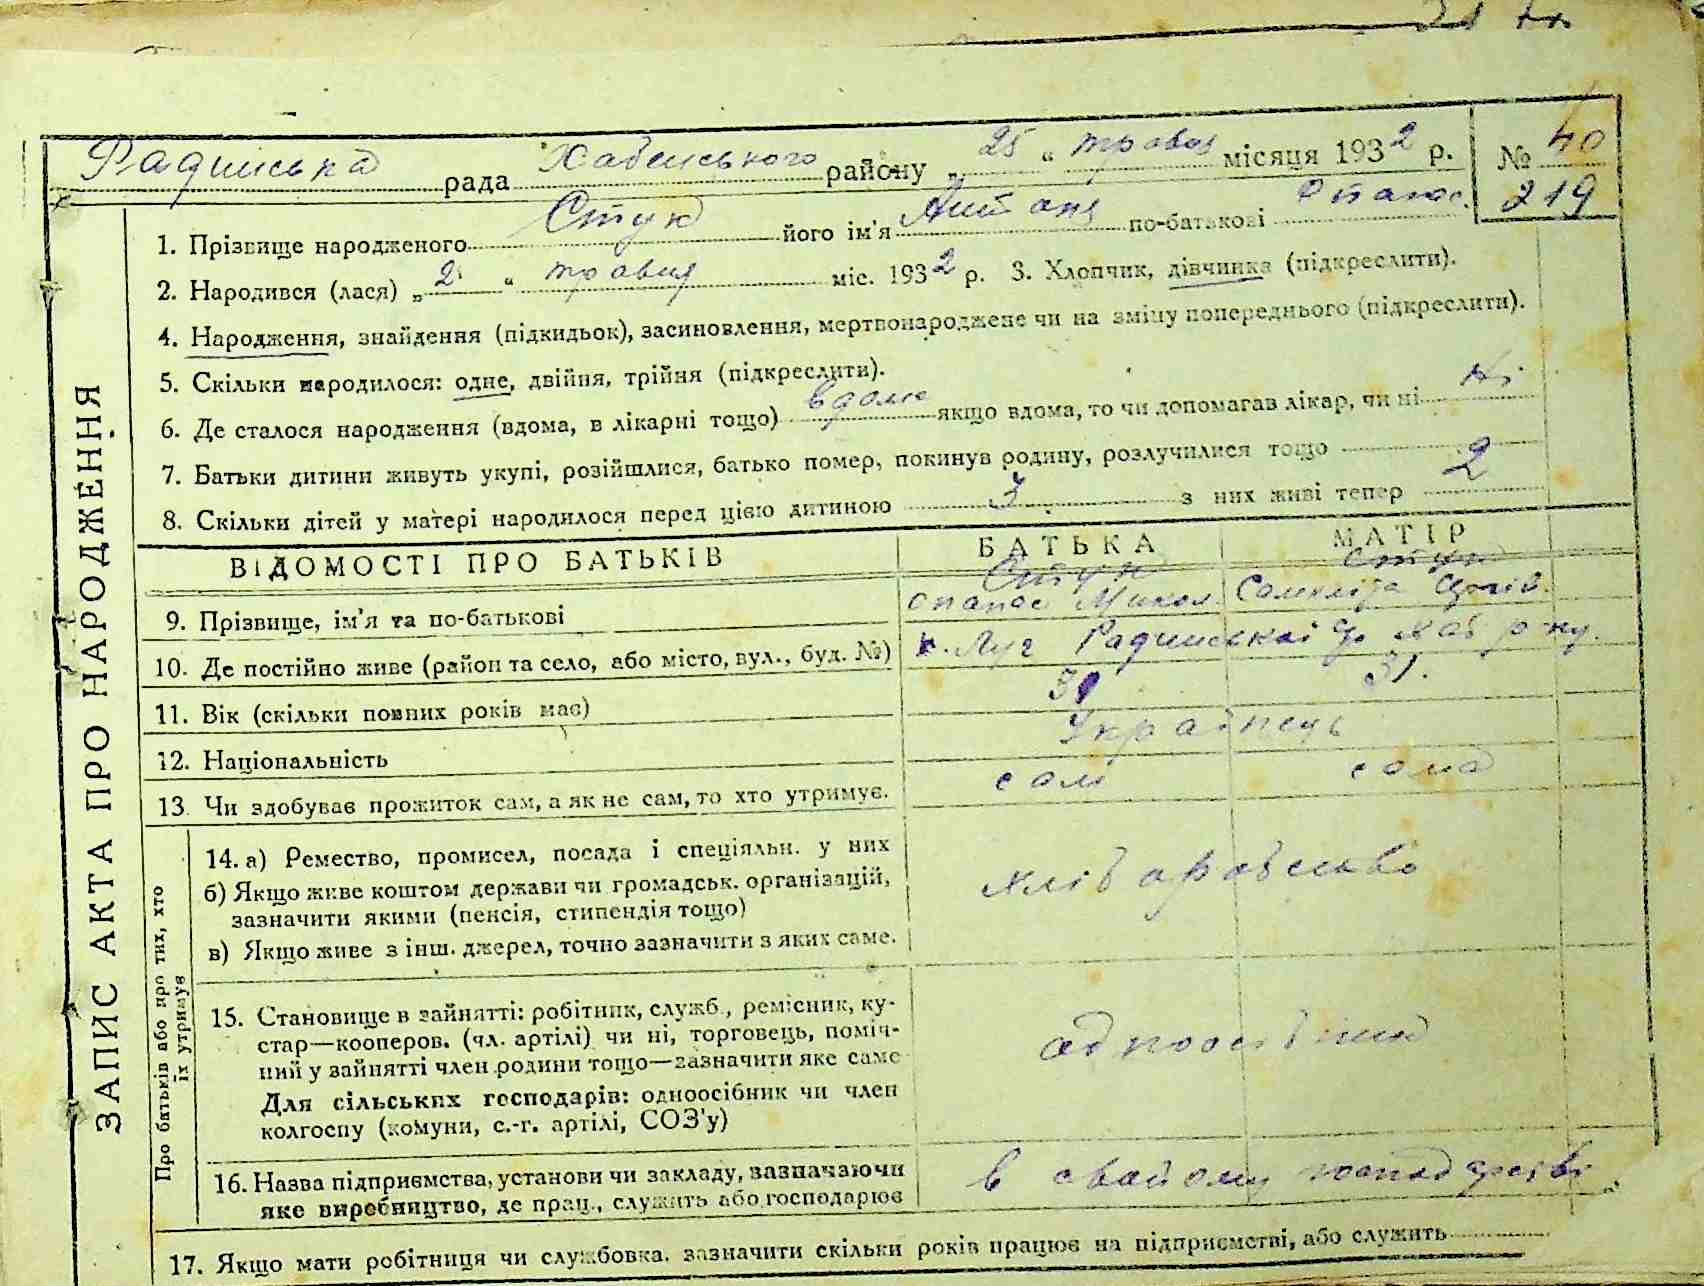 Радинська рада Хабенського району „25“ травня місяця 1932 р. № 40
219
1. Прізвище народженого Стук його ім'я Антоня по-батькові Опанас.
2. Народився (лася) „2“ травня міс. 1932 р. 3. Хлопчик, дівчинка (підкреслити).
4. Народження, знайдення (підкидьок), засиновлення, мертвонароджене чи на зміну попереднього (підкреслити).
5. Скільки народилося: одне, двійня, трійня (підкреслити).
6. Де сталося народження (вдома, в лікарні тощо) вдома якщо вдома, то чи допомагав лікар, чи ні ні
7. Батьки дитини живуть укупі, розійшлися, батько помер, покинув родину, розлучилися тощо
8. Скільки дітей у матері народилося перед цією дитиною 3 з них живі тепер 2
ЗАПИС АКТА ПРО НАРОДЖЕННЯ
ВІДОМОСТІ ПРО БАТЬКІВ БАТЬКА МАТІР
Стук Стук
9. Прізвище, ім'я та по-батькові Опанас Микол.
10. Де постійно живе (район та село, або місто, вул., буд. №) Луг Радинської
11. Вік (скільки повних років має) 31.
12. Національність Українець
13. Чи здобуває прожиток сам, а як не сам, то хто утримує. сам сама
Про батьків або про тих, хто
їх утримує
14. а) Ремество, промисел, посада і спеціяльн. у них
б) Якщо живе коштом держави чи громадськ. організацій,
зазначити якими (пенсія, стипендія тощо)
хліборобство
в) Якщо живе з інш. джерел, точно зазначити з яких саме.
15. Становище в зайнятті: робітник, служб., ремісник, ку-
стар—кооперов. (чл. артілі) чи ні, торговець, поміч-
ний у зайнятті член родини тощо—зазначити яке саме
Для сільських господарів: одноосібник чи член
колгоспу (комуни, с.-г. артілі, СОЗ'у)
16. Назва підприємства, установи чи закладу, зазначаючи в свайому
яке виробництво, де прац., служить або господарює
17. Якщо мати робітниця чи службовка, зазначити скільки років працює на підприємстві, або служить